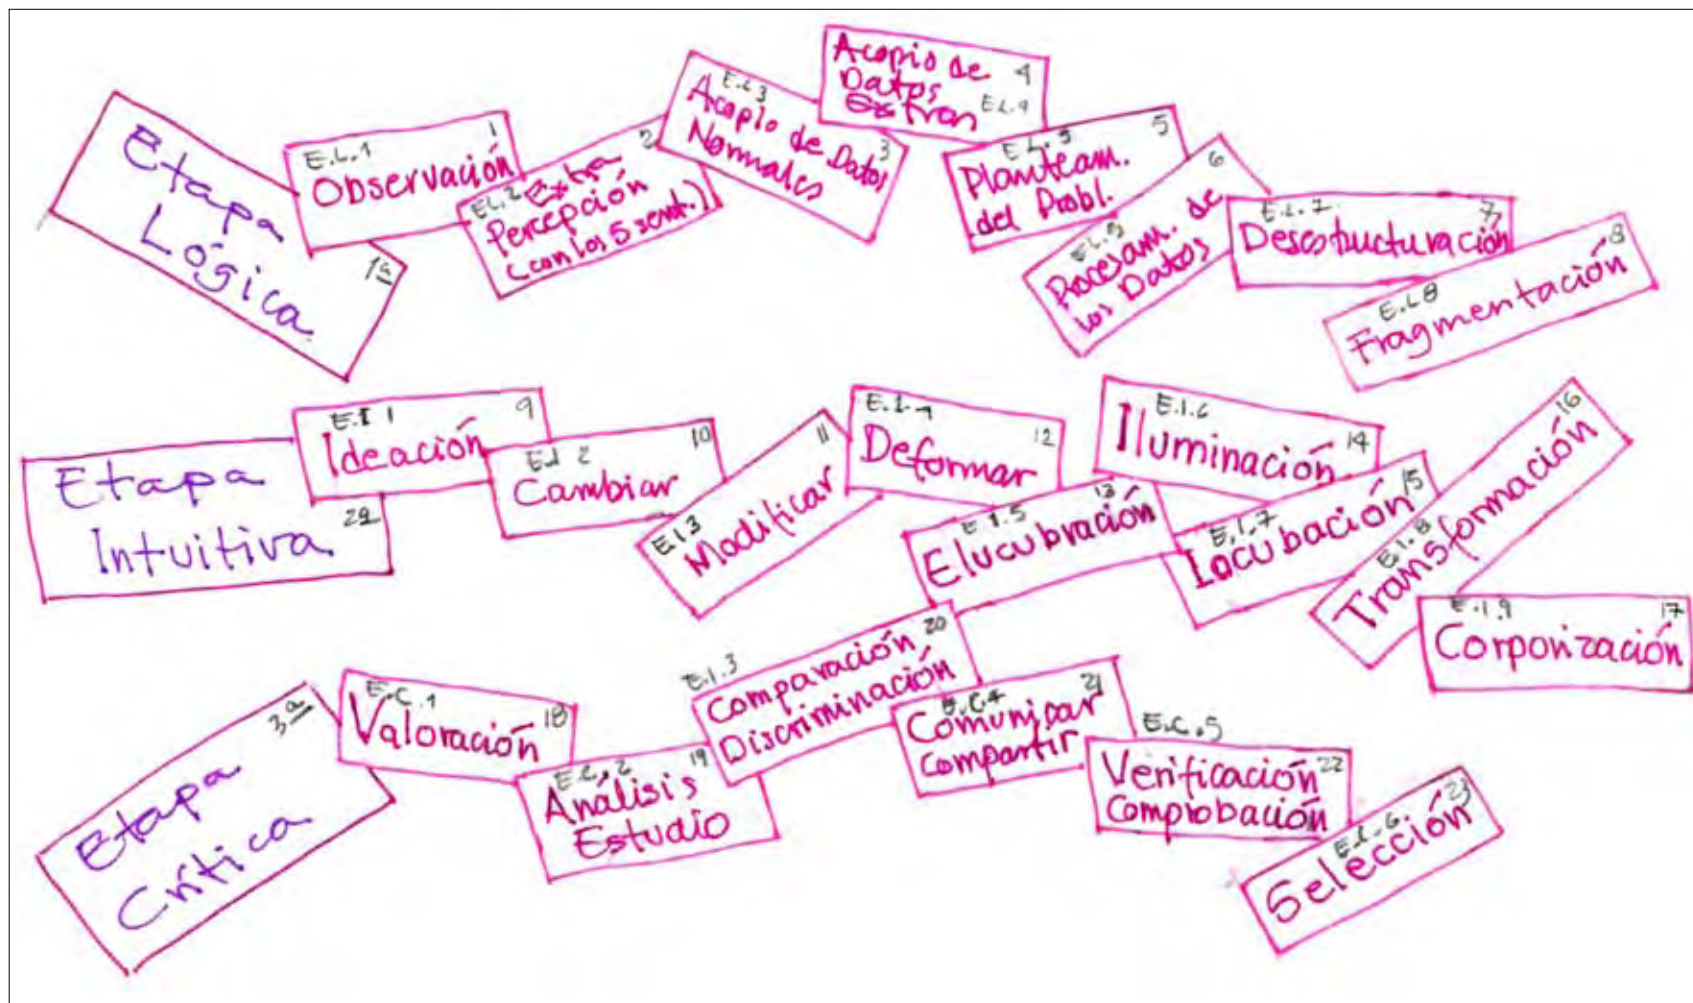 Etapa
Lógica
1ª
E.L.1
1
Observación
E.L.2
Extra
2
Percepción
(con los 5 sent.)
E.L.3
Acopio de Datos
3
Normales
Acopio de
4
Datos
E.L.4
Extras
E.L.5
5
Planteam.
del Probl.
6
Procesam. de
los Datos
E.L.7
7
Desestructuración
E.L.8
8
Fragmentación
Etapa
2ª
Intuitiva
E.I 1
9
Ideación
E.I 2
10
Cambiar
E.I.3
11
Modificar
12
Deformar
E.I.5
13
Elucubración
E.I.6
Iluminación
14
E.I.7
15
16
E.I.8
Transformación
E.I.9
17
Corporización
3ª
Etapa
Crítica
E.C.1
Valoración
18
E.C.2
19
Análisis
Estudio
E.I.3
20
Comparación
Discriminación
E.C.4
21
Comunicar
Compartir
E.C.5
Verificación
22
Comprobación
23
Selección